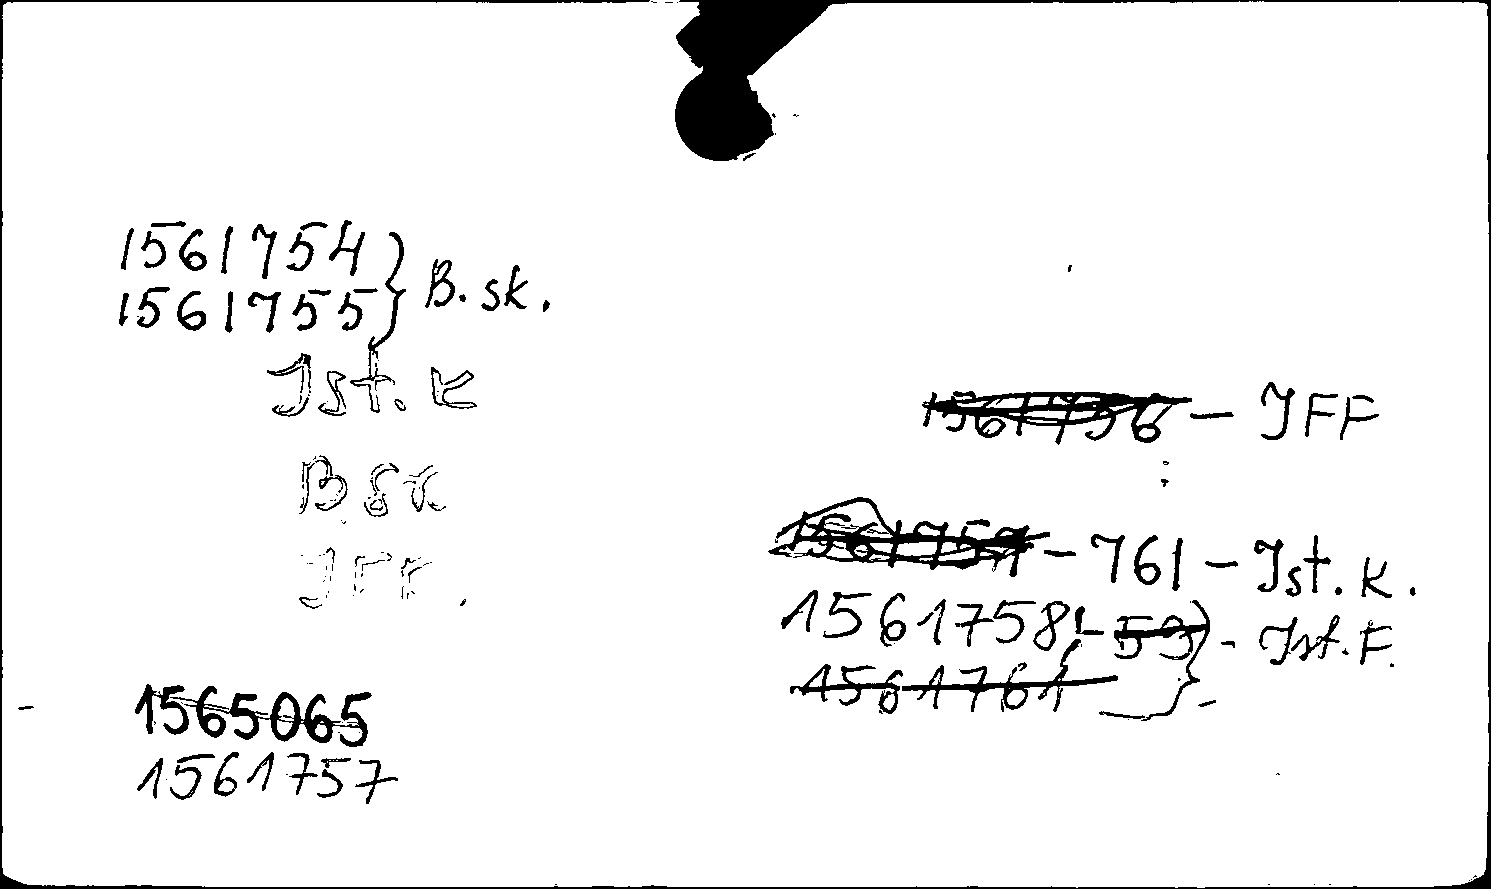 1561754 } B. sk.
1561755
Ist. k
B sk
IFF.
1565065
1561757
1561756 - IFF
1561757 - 761 - Ist. k.
1561758 - 59 } - Ist. F.
1561761